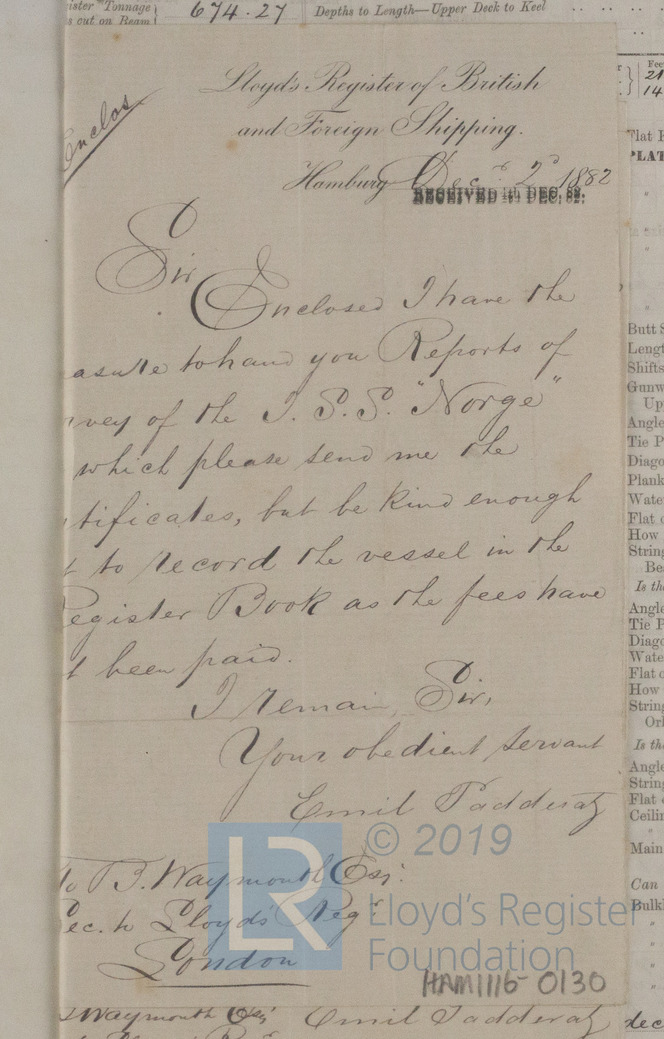 ister "Tonnage
s out on Beam
674.27
Depths to Length—Upper Deck to Keel
Enclos
Lloyd's Register of British
and Foreign Shipping.
Hamburg Dec. 2d 1882
RECEIVED DEC. 82.
Sir
Enclosed I have the
easure to hand you Reports of
rvey of the I. S. S. "Norge"
which please send me the
tificates, but be kind enough
t to record the vessel in the
Register Book as the fees have
t been paid.
I remain, Sir,
Your obedient servant
Emil Padderatz
To B. Waymouth Esqr.
Sec. to Lloyd's Regr
London
LR
© 2019
Lloyd's Register
Foundation
HAM1116-0130
Waymouth Esq Emil Padderatz
Fee
21
14
Flat
PLAT
Butt S
Lengt
Shifts
Gunw
Up
Angle
Tie P
Diago
Plank
Wate
Flat o
How
String
Be
Is th
Angle
Tie P
Diago
Wate
Flat o
How
String
Orl
Is the
Angle
String
Flat o
Ceilin
Main
Can
Bulkh
dec